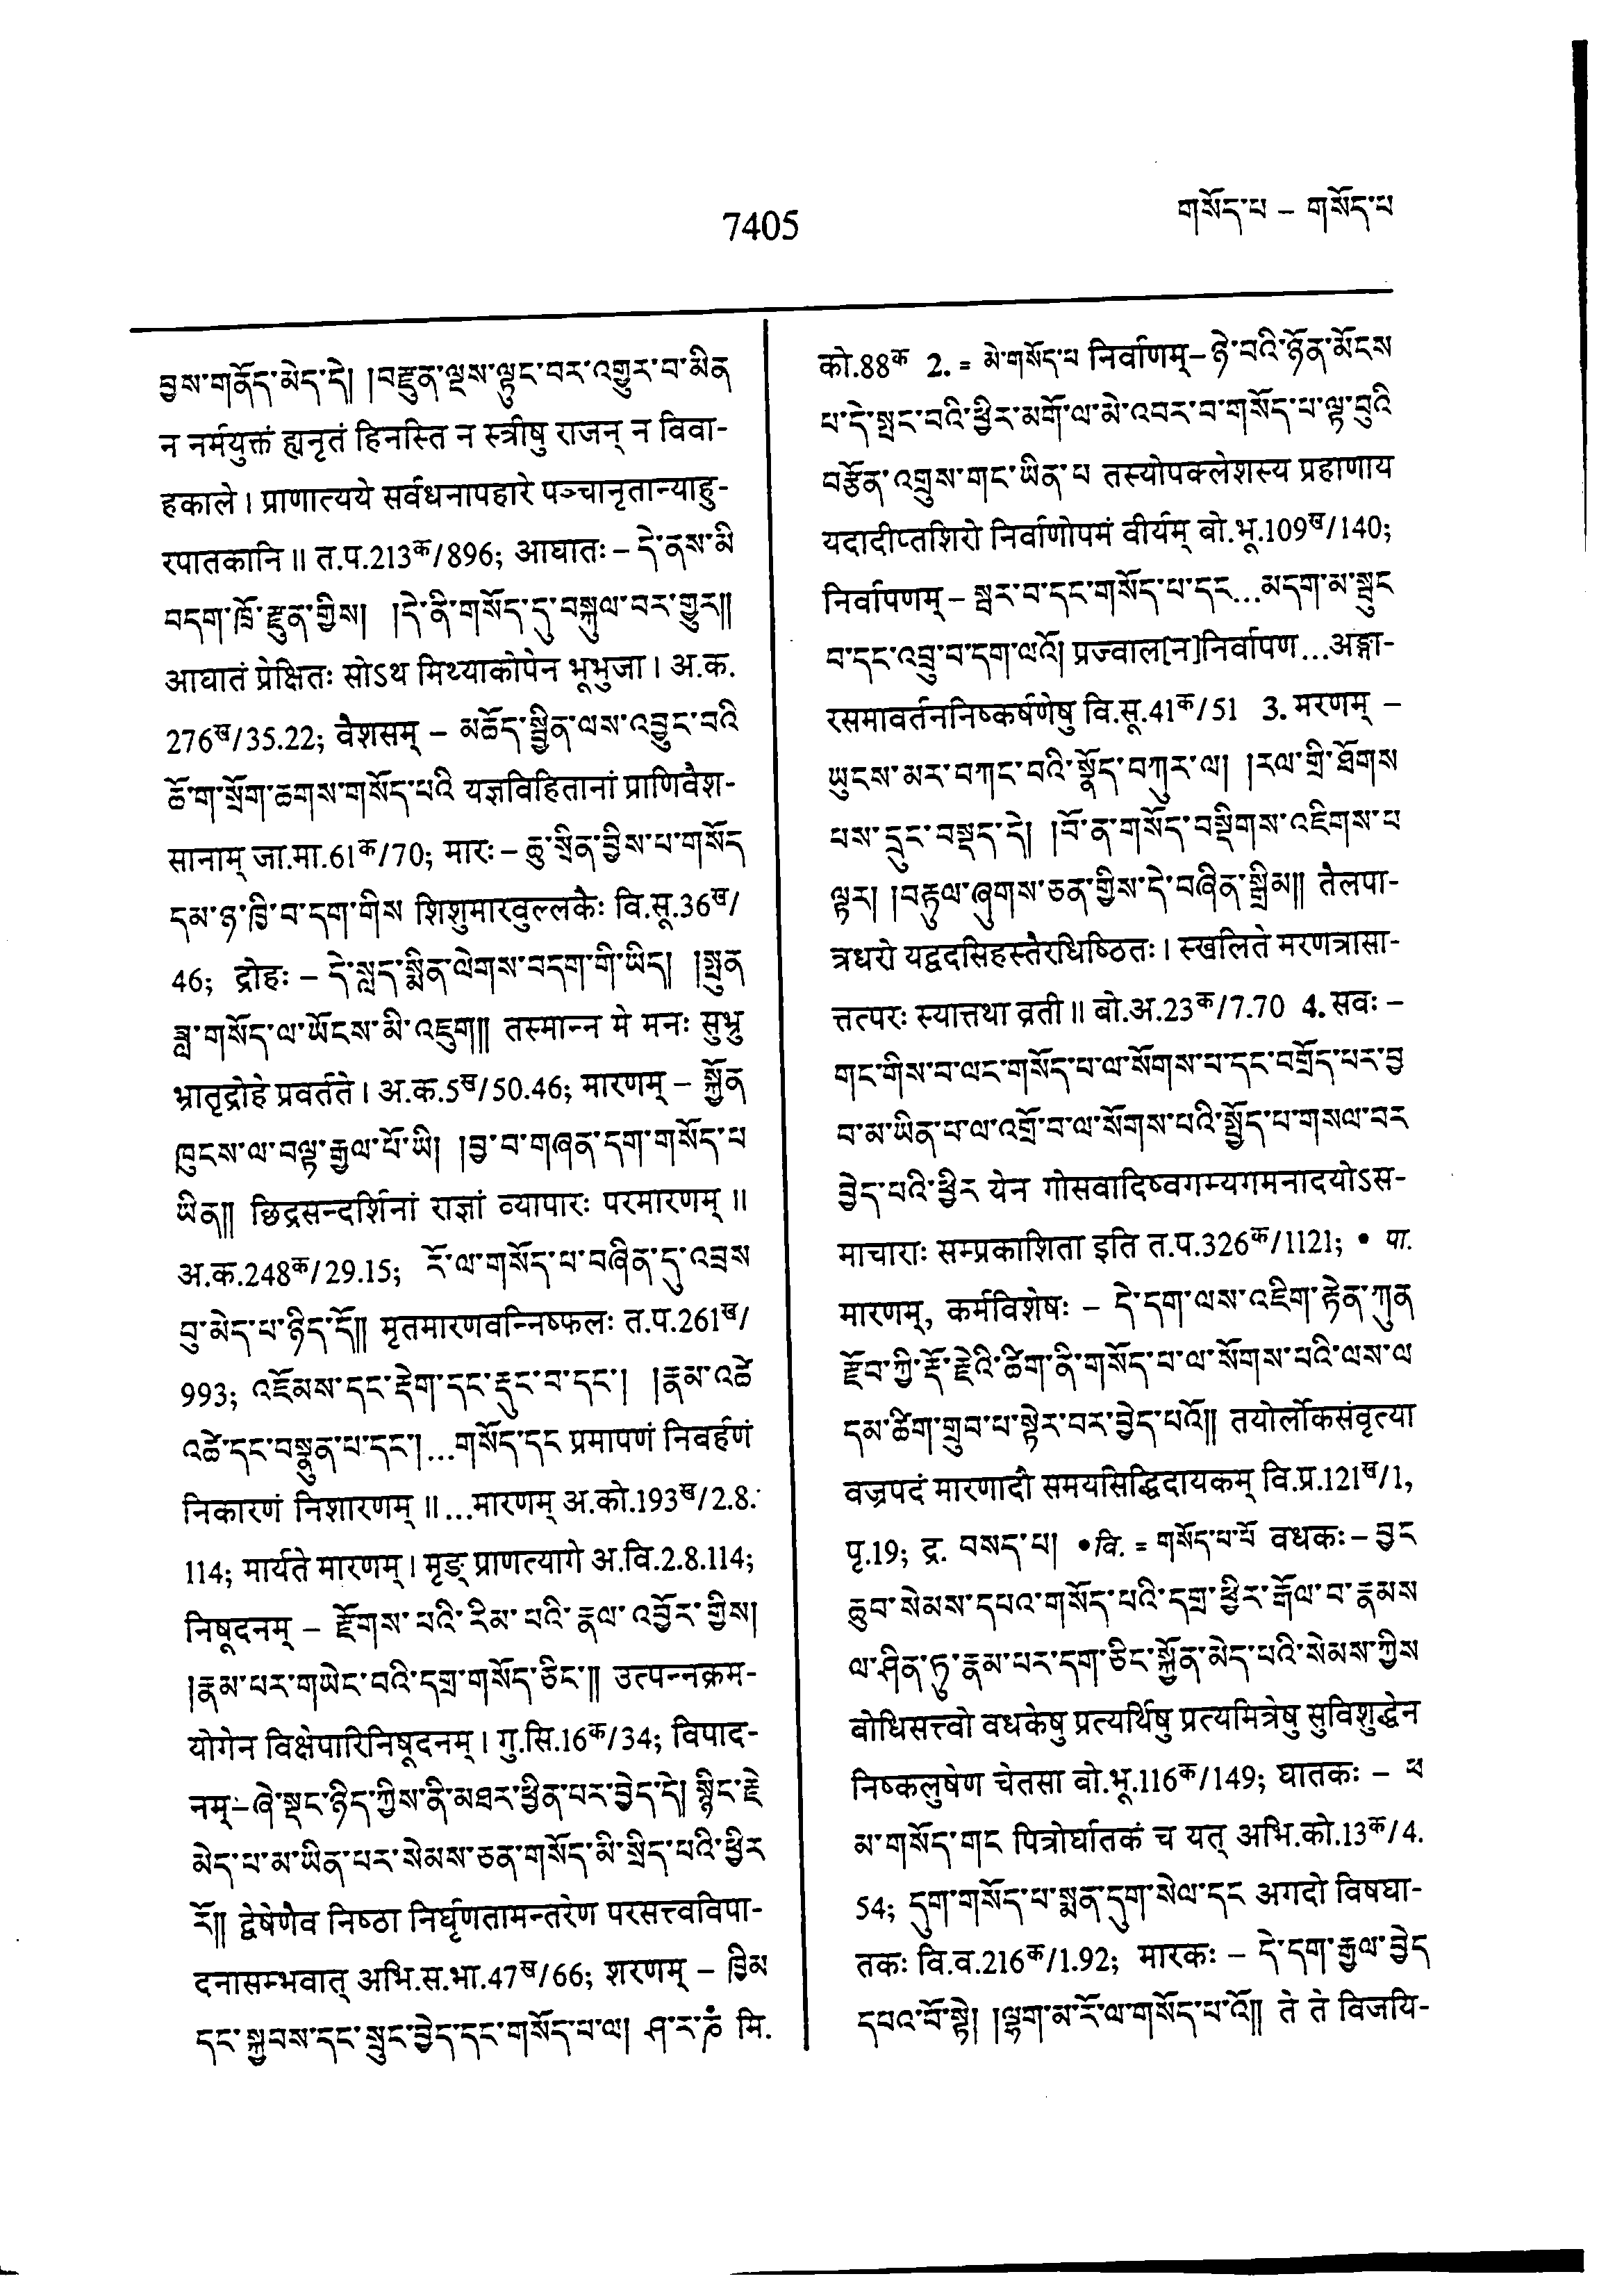 7405
གསོད་པ – གསོད་པ
བྱས་གནོད་མེད་དེ། །བརྫུན་ལྔས་ལྟུང་བར་འགྱུར་བ་མིན
न नर्मयुक्तं ह्यनृतं हिनस्ति न स्त्रीषु राजन् न विवा-
हकाले। प्राणात्यये सर्वधनापहारे पञ्चानृतान्याहु-
रपातकानि॥ त.प.213क/896; आघातः – དེ་ནས་མི
བདག་ཁྲོ་རྫུན་གྱིས། །དེ་ནི་གསོད་དུ་བསྐུལ་བར་གྱུར॥
आघातं प्रेक्षितः सोऽथ मिथ्याकोपेन भूभुजा। अ.क.
276ख/35.22; वैशसम् – མཆོད་སྦྱིན་ལས་འབྱུང་བའི
ཆོ་ག་སྲོག་ཆགས་གསོད་པའི यज्ञविहितानां प्राणिवैश-
सानाम् जा.मा.61क/70; मारः – ཆུ་སྲིན་བྱིས་པ་གསོད
དམ་ཉ་ཁྲི་བ་དག་གིས शिशुमारवुल्लकैः वि.सू.36ख/
46; द्रोहः – དེ་སླད་སྨིན་ལེགས་བདག་གི་ཡིད། །སྤུན
ཟླ་གསོད་ལ་ཡོངས་མི་འཇུག॥ तस्मान्न मे मनः सुभ्रु
भ्रातृद्रोहे प्रवर्तते। अ.क.5ख/50.46; मारणम् – སྐྱོན
ཁུངས་ལ་བལྟ་རྒྱལ་པོ་ཡི། །བྱ་བ་གཞན་དག་གསོད་པ
ཡིན॥ छिद्रसन्दर्शिनां राज्ञां व्यापारः परमारणम्॥
अ.क.248क/29.15; རོ་ལ་གསོད་པ་བཞིན་དུ་འབྲས
བུ་མེད་པ་ཉིད་དོ॥ मृतमारणवन्निष्फलः त.प.261ख/
993; འཇོམས་དང་རྡེག་དང་རྡུང་བ་དང་། །རྣམ་འཚེ
འཚེ་དང་བསྣུན་པ་དང་།...གསོད་དང प्रमापणं निवर्हणं
निकारणं निशारणम्॥...मारणम् अ.को.193ख/2.8.
114; मार्यते मारणम्। मृङ् प्राणत्यागे अ.वि.2.8.114;
निषूदनम् – རྫོགས་པའི་རིམ་པའི་རྣལ་འབྱོར་གྱིས།
།རྣམ་པར་གཡེང་བའི་དགྲ་གསོད་ཅིང་॥ उत्पन्नक्रम-
योगेन विक्षेपारिनिषूदनम्। गु.सि.16क/34; विपाद-
नम् – ཞེ་སྡང་ཉིད་ཀྱིས་ནི་མཐར་ཕྱིན་པར་བྱེད་དེ། སྙིང་རྗེ
མེད་པ་མ་ཡིན་པར་སེམས་ཅན་གསོད་མི་སྲིད་པའི་ཕྱིར
རོ॥ द्वेषेणैव निष्ठा निर्घृणतामन्तरेण परसत्त्वविपा-
दनासम्भवात् अभि.स.भा.47ख/66; शरणम् – ཁྱིམ
དང་སྐྱབས་དང་སྲུང་བྱེད་དང་གསོད་པ་ལ། ཤ་ར་ཎཾ मि.
को.88क 2. = མེ་གསོད་པ निर्वाणम् – ཉེ་བའི་ཉོན་མོངས
པ་དེ་སྤང་བའི་ཕྱིར་མགོ་ལ་མེ་འབར་བ་གསོད་པ་ལྟ་བུའི
བརྩོན་འགྲུས་གང་ཡིན་པ तस्योपक्लेशस्य प्रहाणाय
यदादीप्तशिरो निर्वाणोपमं वीर्यम् बो.भू.109ख/140;
निर्वापणम् – སྦར་བ་དང་གསོད་པ་དར...མདག་མ་སྦུང
བ་དང་འབྲུ་བ་དག་ལའོ། प्रज्वाल[न]निर्वापण...अङ्गा-
रसमावर्तननिष्कर्षणेषु वि.सू.41क/51 3. मरणम् –
ཡུངས་མར་བཀང་བའི་སྣོད་བཀུར་ལ། །རལ་གྲི་ཐོགས
པས་དྲུང་བསྡད་དེ། །བོ་ན་གསོད་བསྡིགས་འཇིགས་པ
ལྟར། །བརྟུལ་ཞུགས་ཅན་གྱིས་དེ་བཞིན་སྒྲིམ॥ तैलपा-
त्रधरो यद्वदसिहस्तैरधिष्ठितः। स्खलिते मरणत्रासा-
त्तत्परः स्यात्तथा व्रती॥ बो.अ.23क/7.70 4. सवः –
གང་གིས་བ་ལང་གསོད་པ་ལ་སོགས་པ་དང་བགྲོད་པར་བྱ
བ་མ་ཡིན་པ་ལ་འགྲོ་བ་ལ་སོགས་པའི་སྤྱོད་པ་གསལ་བར
བྱེད་པའི་ཕྱིར येन गोसवादिष्वगम्यगमनादयोऽस-
माचाराः सम्प्रकाशिता इति त.प.326क/1121; • पा.
मारणम्, कर्मविशेषः – དེ་དག་ལས་འཇིག་རྟེན་ཀུན
རྫོབ་ཀྱི་རྡོ་རྗེའི་ཚིག་ནི་གསོད་པ་ལ་སོགས་པའི་ལས་ལ
དམ་ཚིག་གྲུབ་པ་སྟེར་བར་བྱེད་པའོ॥ तयोर्लोकसंवृत्या
वज्रपदं मारणादौ समयसिद्धिदायकम् वि.प्र.121ख/1,
पृ.19; द्र. བསད་པ། • वि. = གསོད་པ་པོ वधकः – བྱང
ཆུབ་སེམས་དཔའ་གསོད་པའི་དགྲ་ཕྱིར་རྒོལ་བ་རྣམས
ལ་ཤིན་ཏུ་རྣམ་པར་དག་ཅིང་སྐྱོན་མེད་པའི་སེམས་ཀྱིས
बोधिसत्त्वो वधकेषु प्रत्यर्थिषु प्रत्यमित्रेषु सुविशुद्धेन
निष्कलुषेण चेतसा बो.भू.116क/149; घातकः – ཕ
མ་གསོད་གང पित्रोर्घातकं च यत् अभि.को.13क/4.
54; དུག་གསོད་པ་སྨན་དུག་སེལ་དང अगदो विषघा-
तकः वि.व.216क/1.92; मारकः – དེ་དག་རྒྱལ་བྱེད
དཔའ་བོ་སྟེ། །ལྷག་མ་རོ་ལ་གསོད་པ་འོ॥ ते ते विजयि-